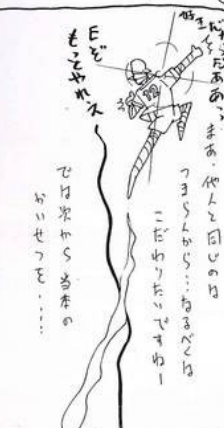 好きだ
まあ、他人と同じのは
つまらんから…なるべくは
こだわりたいですねー
Eぞ
もっとやれス
では次から当本の
かいせつを……